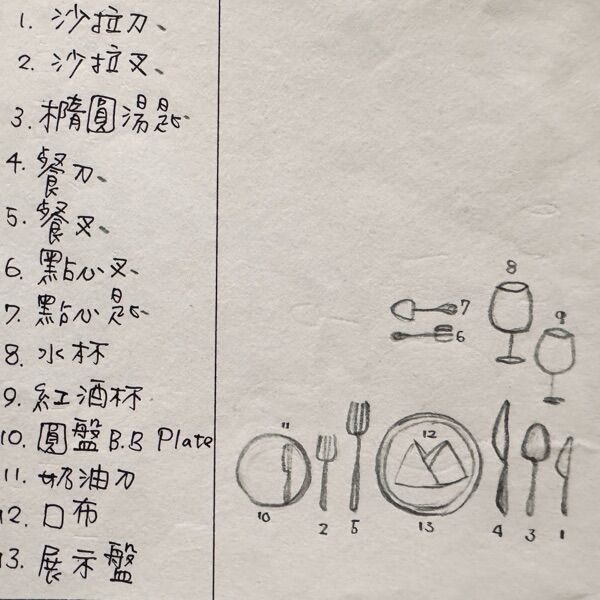 1. 沙拉刀、
2. 沙拉叉、
3. 橢圓湯匙、
4. 餐刀、
5. 餐叉、
6. 點心叉、
7. 點心匙、
8. 水杯
9. 紅酒杯
10. 圓盤 B.B Plate
11. 奶油刀
12. 口布
13. 展示盤
8
7
9
6
11
12
10
2
5
13
4
3
1